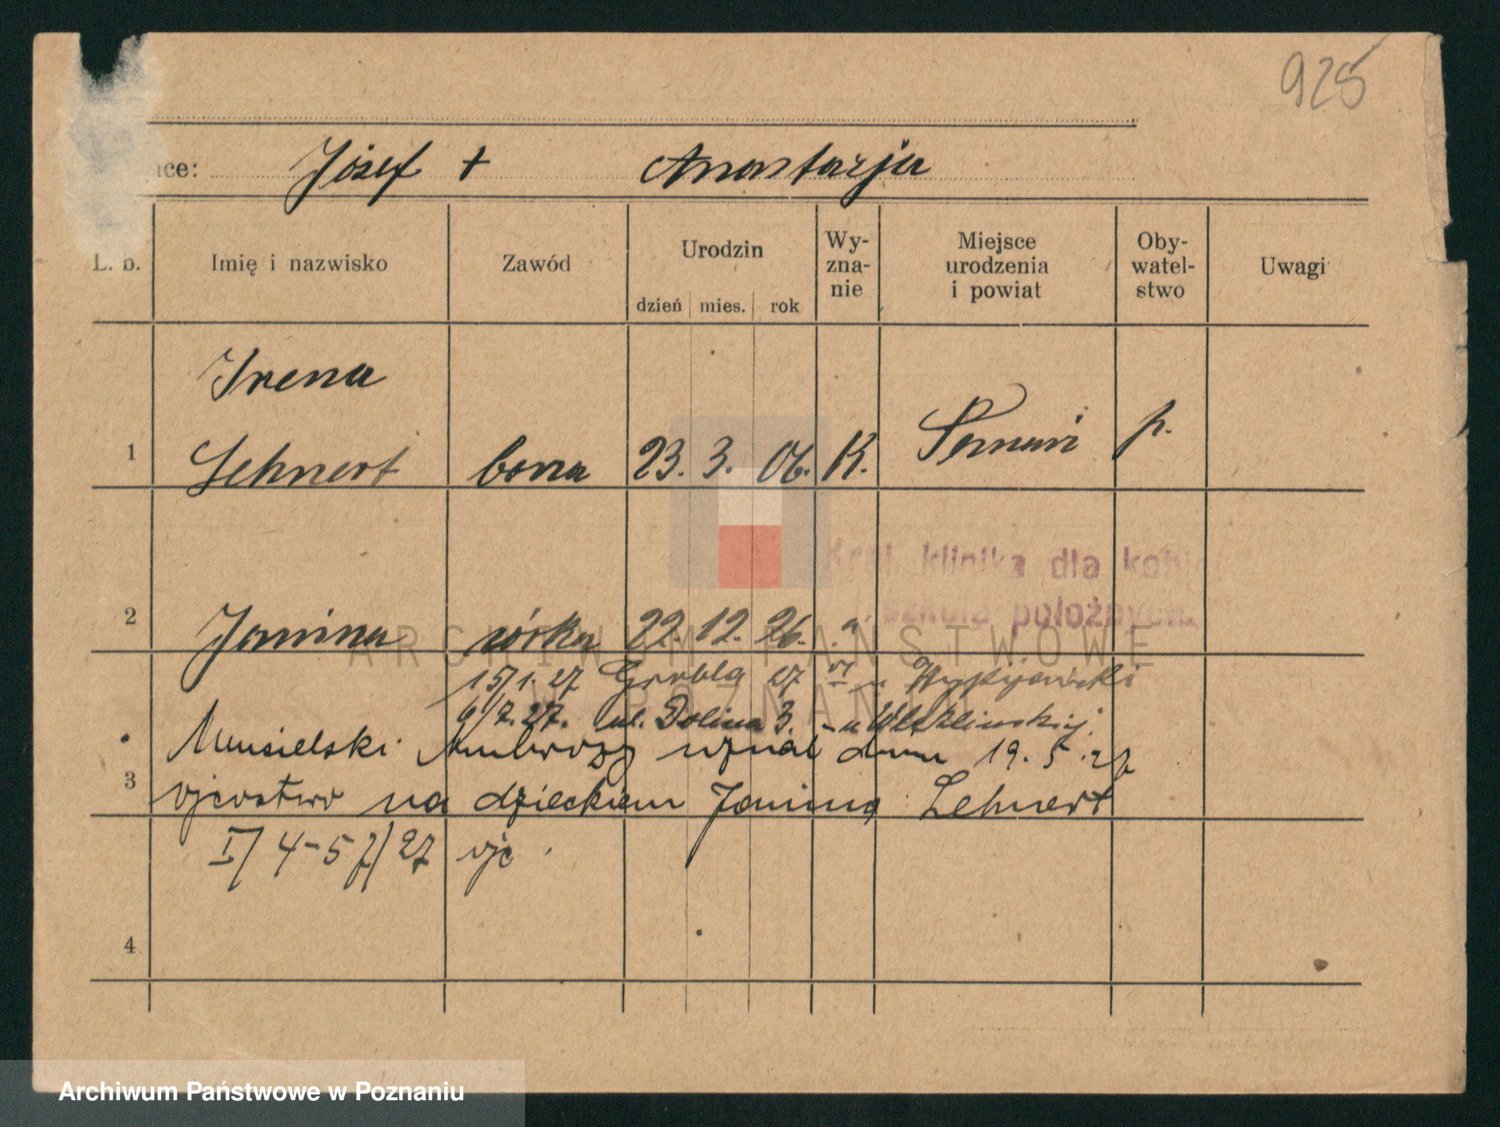 925
ce: Józef + Anastazja
L. b. Imię i nazwisko Zawód Urodzin dzień mies. rok Wy-zna-nie Miejsce urodzenia i powiat Oby-watel-stwo Uwagi
Irena
1 Lehnert bona 23. 3. 06. K. p.
klinika dla
szkoła położnych
2 Janina córka 22. 12. 26. "
ARCHIWUM PAŃSTWOWE
15/1. 27 Grobla 27 u
W POZNANIU
9/7. 27. ul. Dolina 3. u
Musielski Ambroży uznał dnia 19. 5. 27
3 ojcostwo na dzieckiem Janina Lehnert
I/ 4-57/27
4
Archiwum Państwowe w Poznaniu